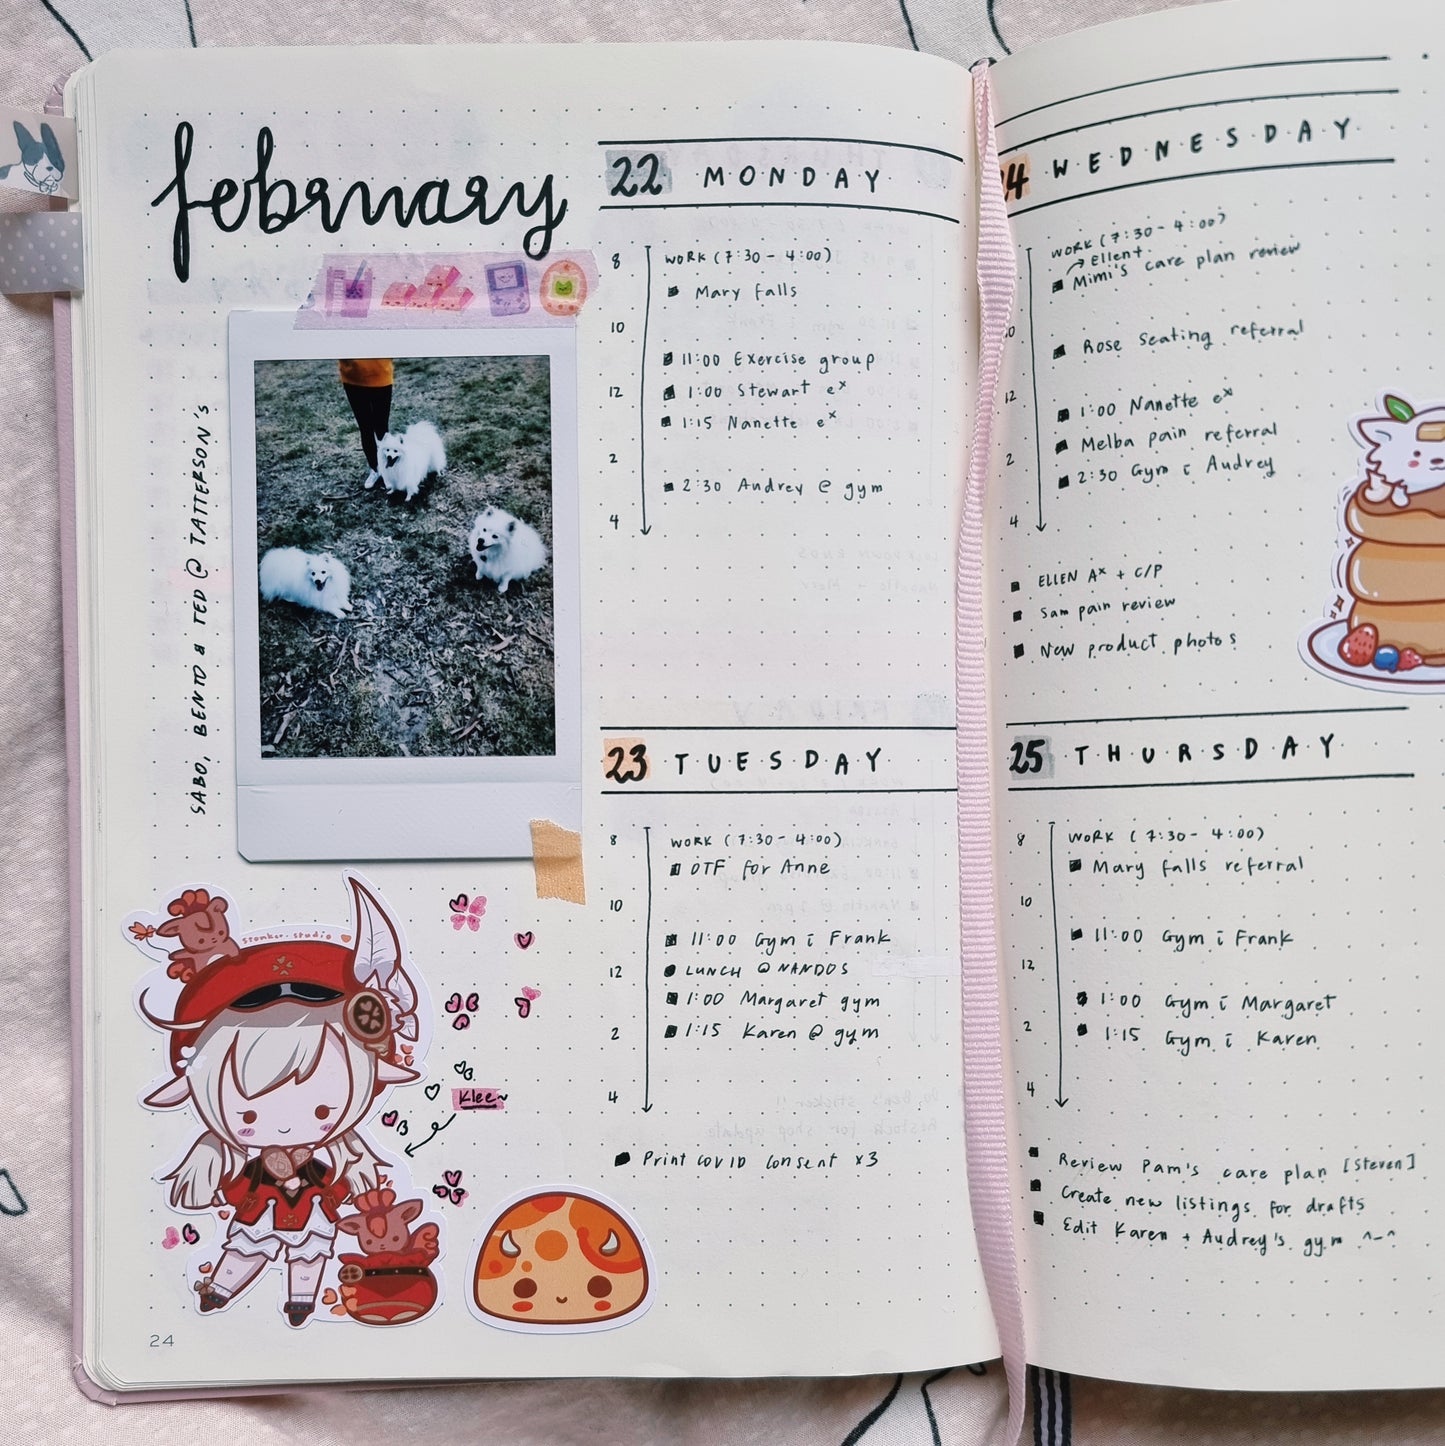 february
SABO, BENTO & TED @ TATTERSON'S
stonker.studio
Klee~
24
22 MONDAY
8
10
12
2
4
WORK (7:30 - 4:00)
Mary falls
11:00 Exercise group
1:00 Stewart eˣ
1:15 Nanette eˣ
2:30 Audrey @ gym
23 TUESDAY
8
10
12
2
4
WORK (7:30 - 4:00)
OTF for Anne
11:00 Gym c̄ Frank
LUNCH @ NANDOS
1:00 Margaret gym
1:15 Karen @ gym
Print COVID consent x3
24 W·E·D·N·E·S·D·A·Y
10
12
2
4
WORK (7:30 - 4:00)
Ellen+
Mimi's care plan review
Rose seating referral
1:00 Nanette eˣ
Melba pain referral
2:30 Gym c̄ Audrey
ELLEN Aˣ + C/P
Sam pain review
New product photos
25 T·H·U·R·S·D·A·Y
8
10
12
2
4
WORK (7:30 - 4:00)
Mary falls referral
11:00 Gym c̄ Frank
1:00 Gym c̄ Margaret
1:15 Gym c̄ Karen
Review Pam's care plan [Steven]
Create new listings for drafts
Edit Karen + Audrey's gym ^-^